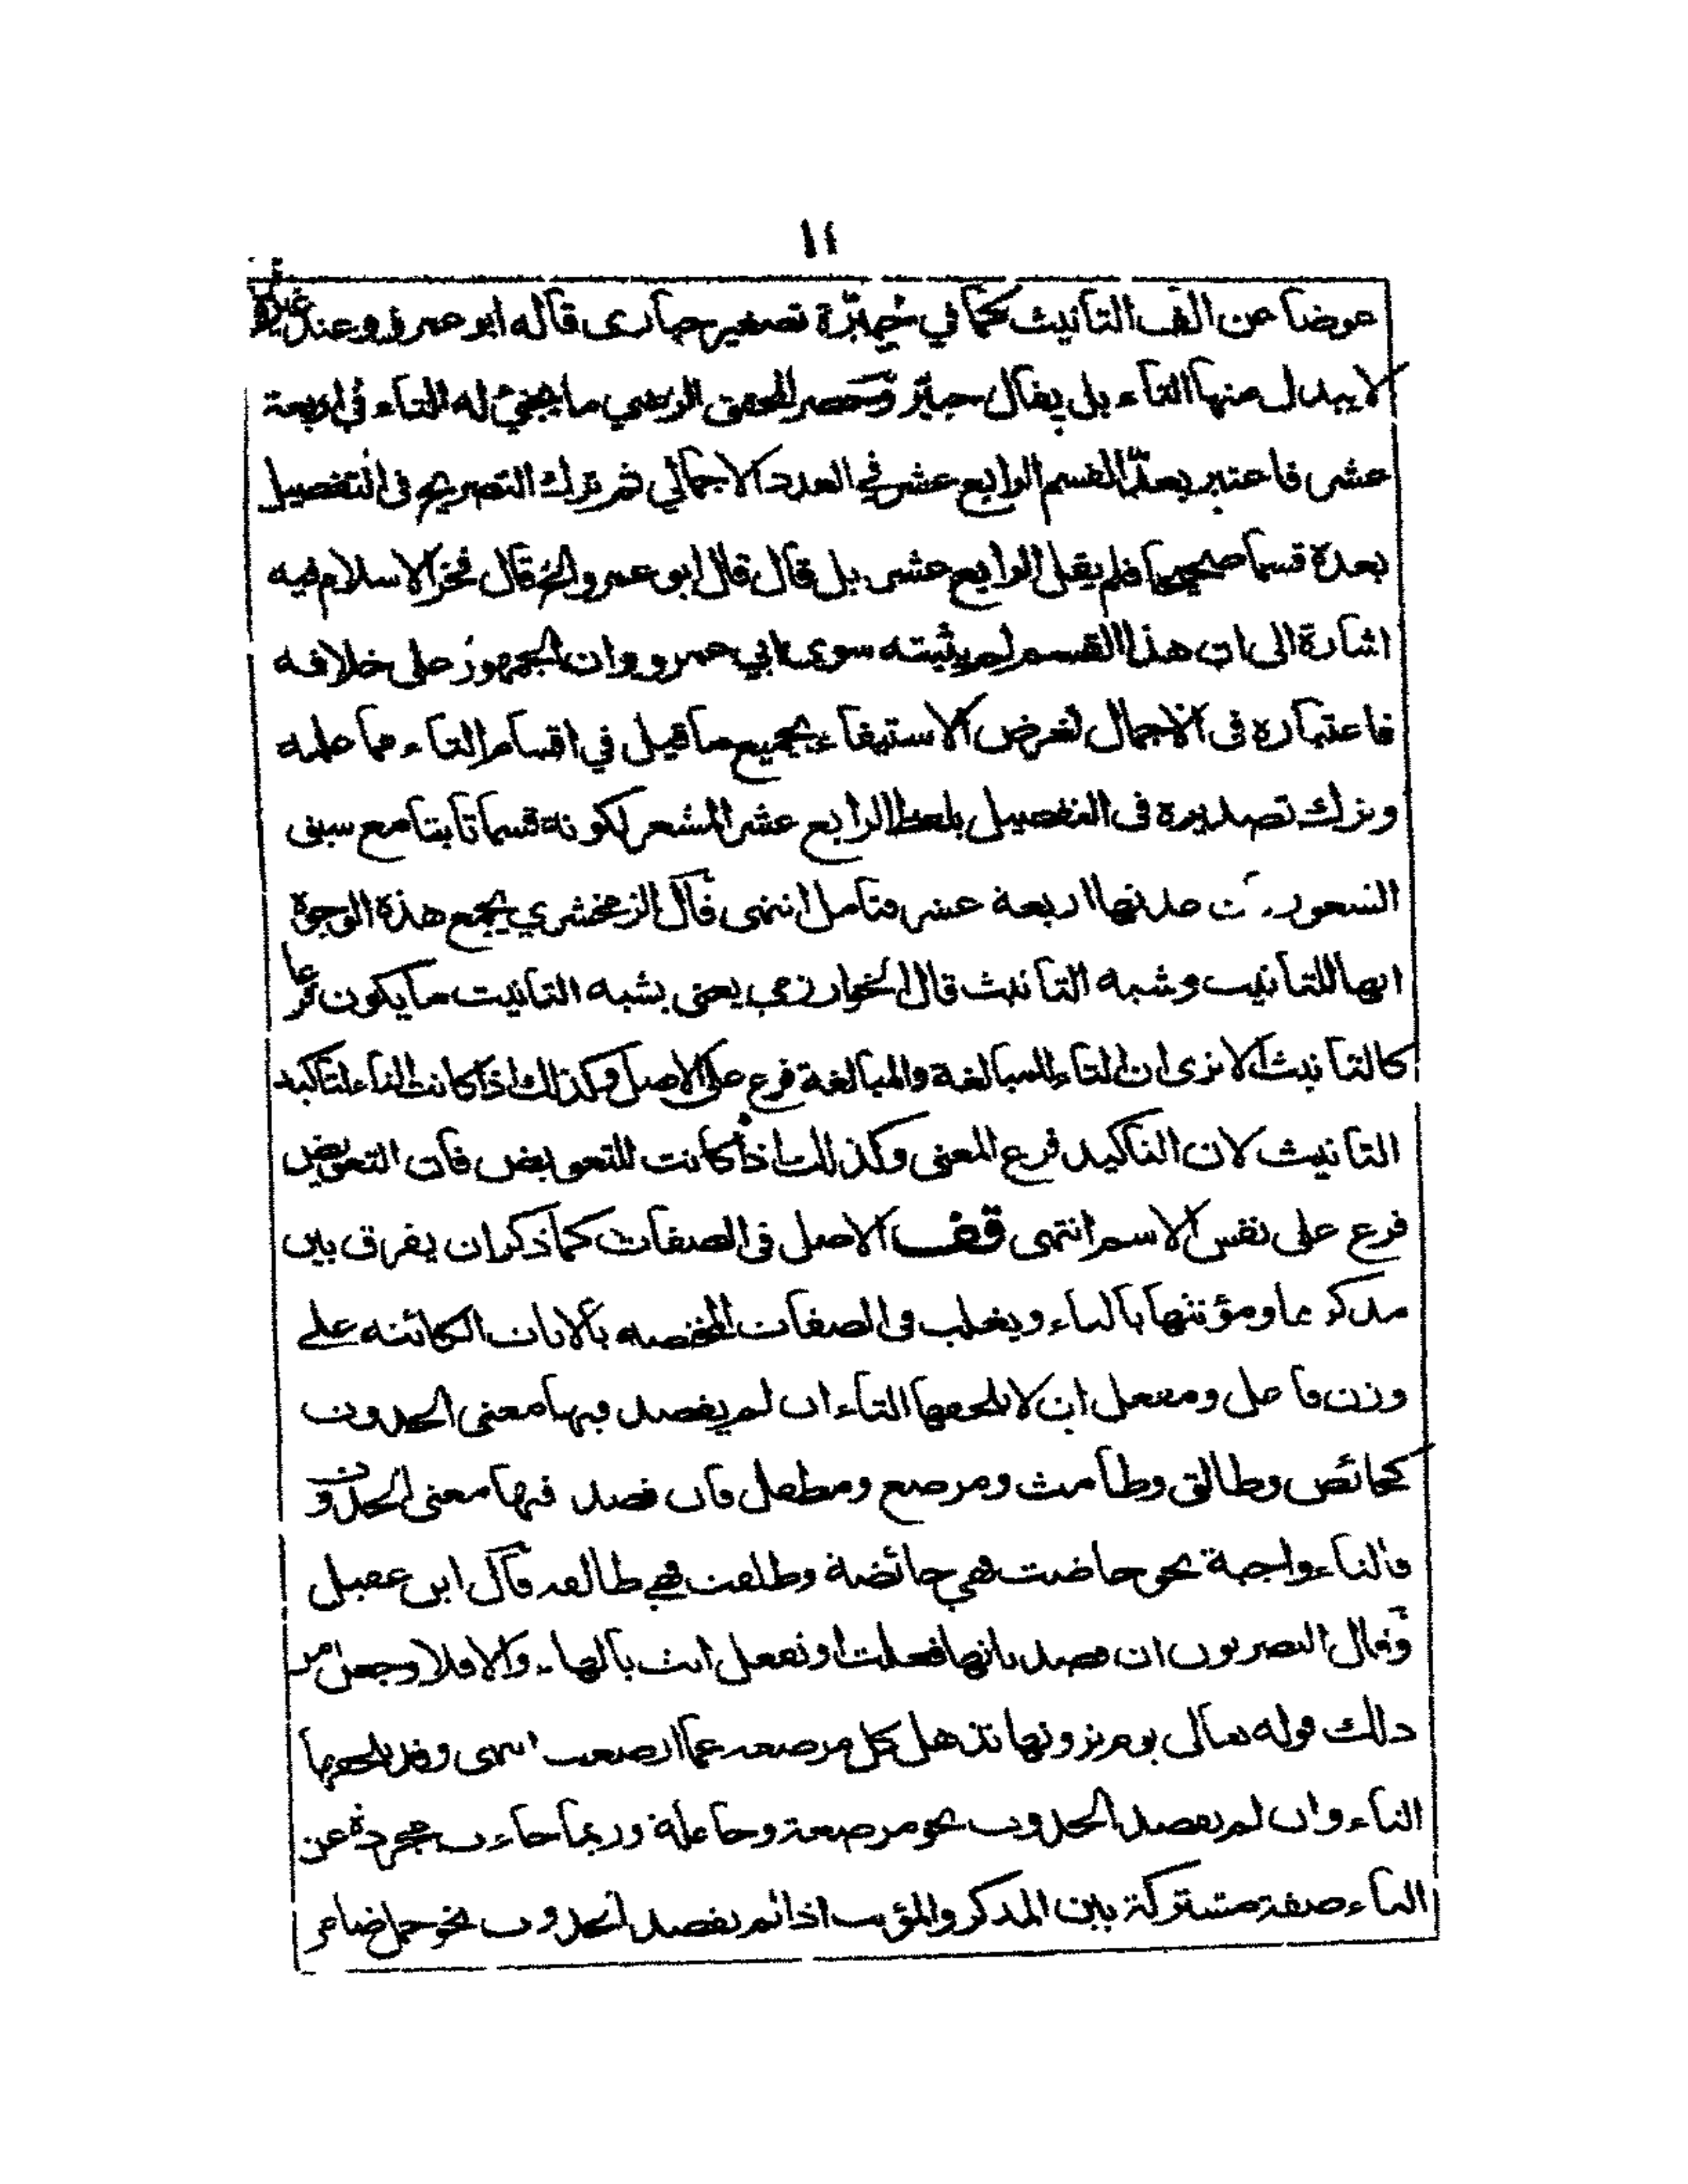 ١٢
عوضا عن الف التانيث كما في حبيّرة تصغير حبارى قاله ابو عمرو وعند غيره
لا يبدل منها التاء بل يقال حبيّر وحصر المحقق الرضي ما يجئ له التاء في اربعة
عشر فاعتبر بعدّ القسم الرابع عشر في العدد الاجمالي ثم ترك التصريح فى التفصيل
بعدّه قسما صحيحا فلم يقل الرابع عشر بل قال قال ابو عمرو الخ قال فخر الاسلام فيه
اشارة الى ان هذا القسم لم يثبته سوى ابي عمرو وان الجمهور على خلافه
فاعتباره فى الاجمال لغرض الاستيفاء بجميع ما قيل في اقسام التاء مما علمه
وترك تصديره فى التفصيل بلفظ الرابع عشر المشعر لكونه قسما ثابتا مع سبق
الشعور عدتها اربعة عشر فتامل انتهى قال الزمخشري يجمع هذه الوجوه
انها للتانيث وشبه التانيث قال الخوارزمي يعنى بشبه التانيث ما يكون فرعا
كالتانيث الا ترى ان التاء للمبالغة والمبالغة فرع على الاصل وكذلك اذا كانت التاء لتاكيد
التانيث لان التاكيد فرع المعنى وكذلك اذا كانت للتعويض فان التعويض
فرع على نفس الاسم انتهى قف الاصل فى الصفات كما ذكر ان يفرق بين
مذكرها ومؤنثها بالتاء ويغلب فى الصفات المختصه بالاناث الكائنه على
وزن فاعل ومفعل ان لا يلحقها التاء ان لم يقصد فيها معنى الحدوث
كحائض وطالق وطامث ومرضع ومطفل فان قصد فيها معنى الحدوث
فالتاء واجبة نحو حاضت فهي حائضة وطلقت فهي طالقه قال ابن عقيل
وقال البصريون ان قصد بانها فعلت او تفعل انث بالهاء والا فلا وجعل من
ذلك قوله تعالى يوم ترونها تذهل كل مرضعه عما ارضعت انتهى وقد يلحقها
التاء وان لم يقصد الحدوث نحو مرضعة وحاملة وربما جاءت مجردة عن
التاء صفة مشتركة بين المذكر والمؤنث اذا لم يقصد الحدوث نحو جمل ضامر